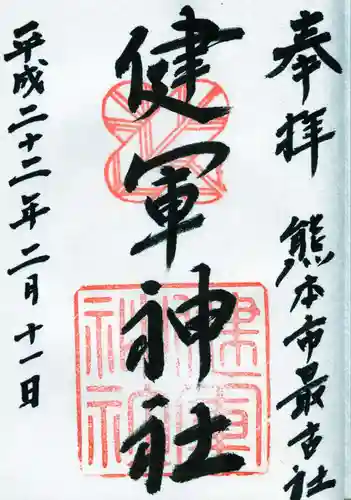 奉拝 熊本市最古社
健軍神社
平成二十二年二月十一日
健軍神社